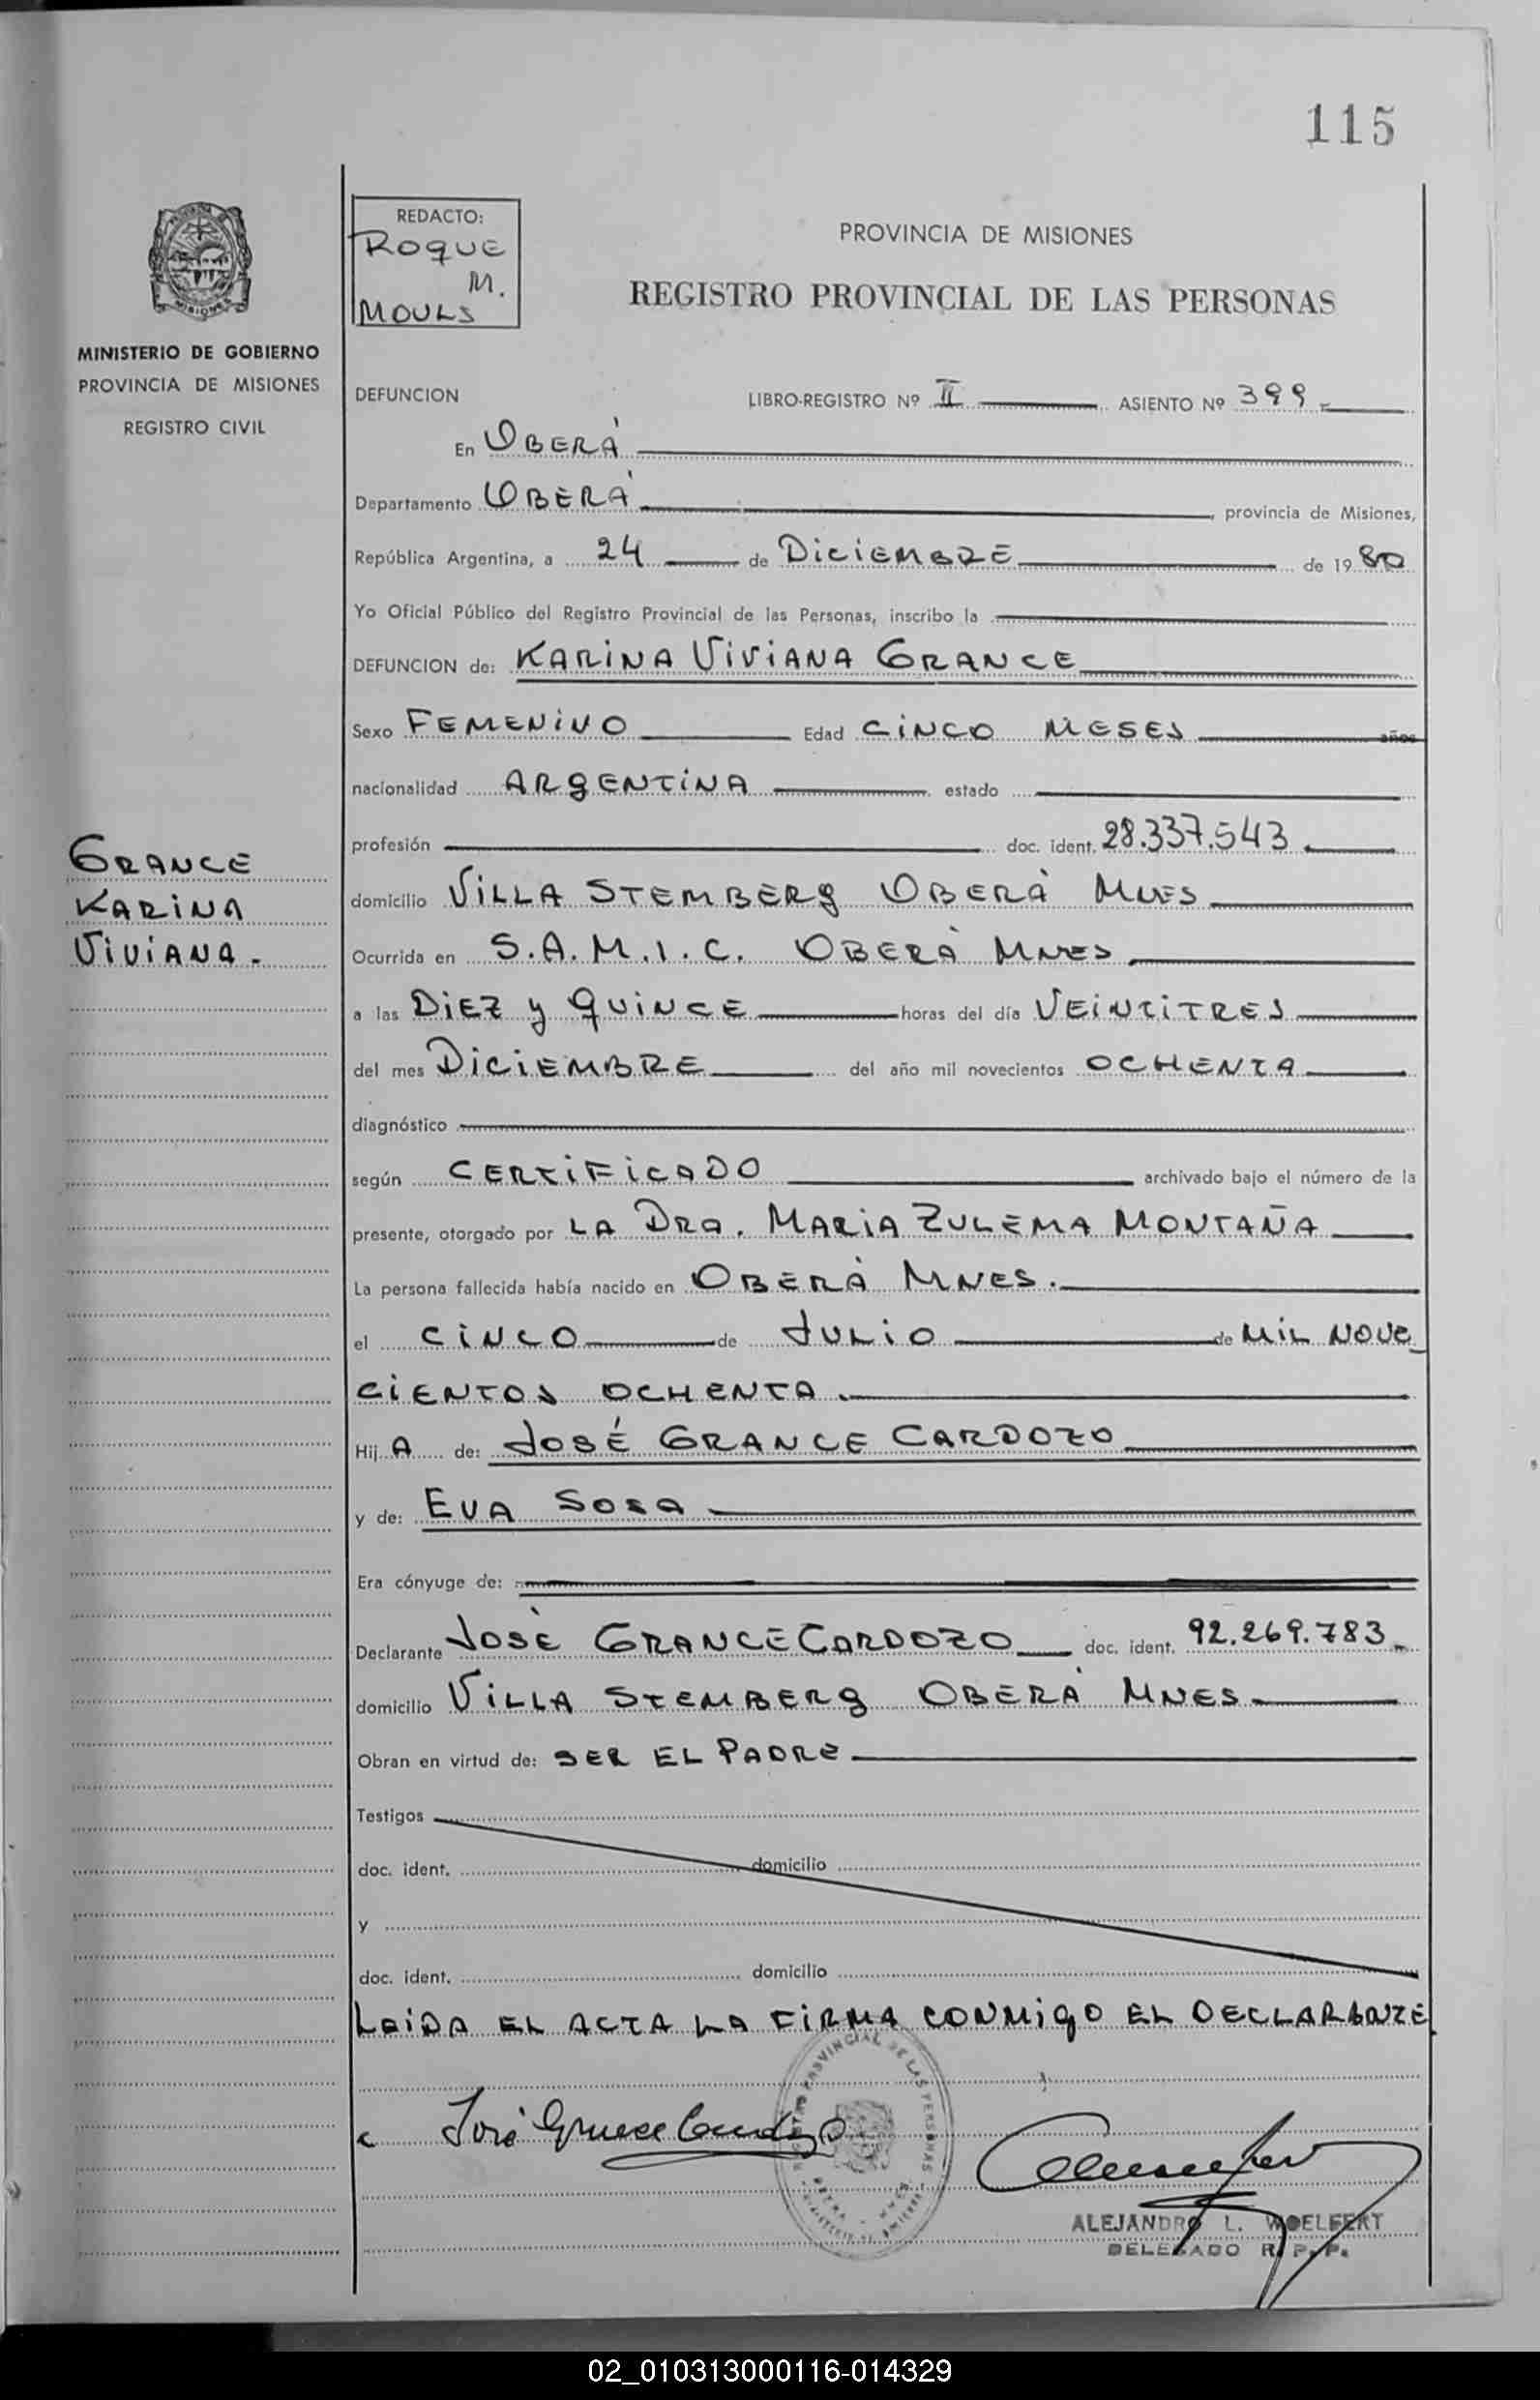 115
REDACTO:
ROQUE
M.
MOULS
PROVINCIA DE MISIONES
REGISTRO PROVINCIAL DE LAS PERSONAS
MINISTERIO DE GOBIERNO
PROVINCIA DE MISIONES
REGISTRO CIVIL
DEFUNCION LIBRO-REGISTRO Nº II ASIENTO Nº 399
En OBERÁ
Departamento OBERÁ, provincia de Misiones,
República Argentina, a 24 de DICIEMBRE de 1980
Yo Oficial Público del Registro Provincial de las Personas, inscribo la
DEFUNCION de: KARINA VIVIANA GRANCE
Sexo FEMENINO Edad CINCO MESES años
nacionalidad ARGENTINA estado
profesión doc. ident. 28.337.543
GRANCE
KARINA
VIVIANA.-
domicilio VILLA STEMBERG OBERÁ MNES
Ocurrida en S.A.M.I.C. OBERÁ MNES
a las DIEZ y QUINCE horas del día VEINTITRES
del mes DICIEMBRE del año mil novecientos OCHENTA
diagnóstico
según CERTIFICADO archivado bajo el número de la
presente, otorgado por LA DRA. MARIA ZULEMA MONTAÑA
La persona fallecida había nacido en OBERÁ MNES.
el CINCO de JULIO de MIL NOVE
CIENTOS OCHENTA.
Hij A de: JOSÉ GRANCE CARDOZO
y de: EVA SOSA
Era cónyuge de:
Declarante JOSÉ GRANCE CARDOZO doc. ident. 92.269.783
domicilio VILLA STEMBERG OBERÁ MNES
Obran en virtud de: SER EL PADRE
Testigos
doc. ident. domicilio
y
doc. ident. domicilio
LEIDA EL ACTA LA FIRMA CONMIGO EL DECLARANTE
REGISTRO PROVINCIAL DE LAS PERSONAS
José Grance Cardozo
ALEJANDRO L. WOELFERT
DELEGADO R. P. P.
02_010313000116-014329